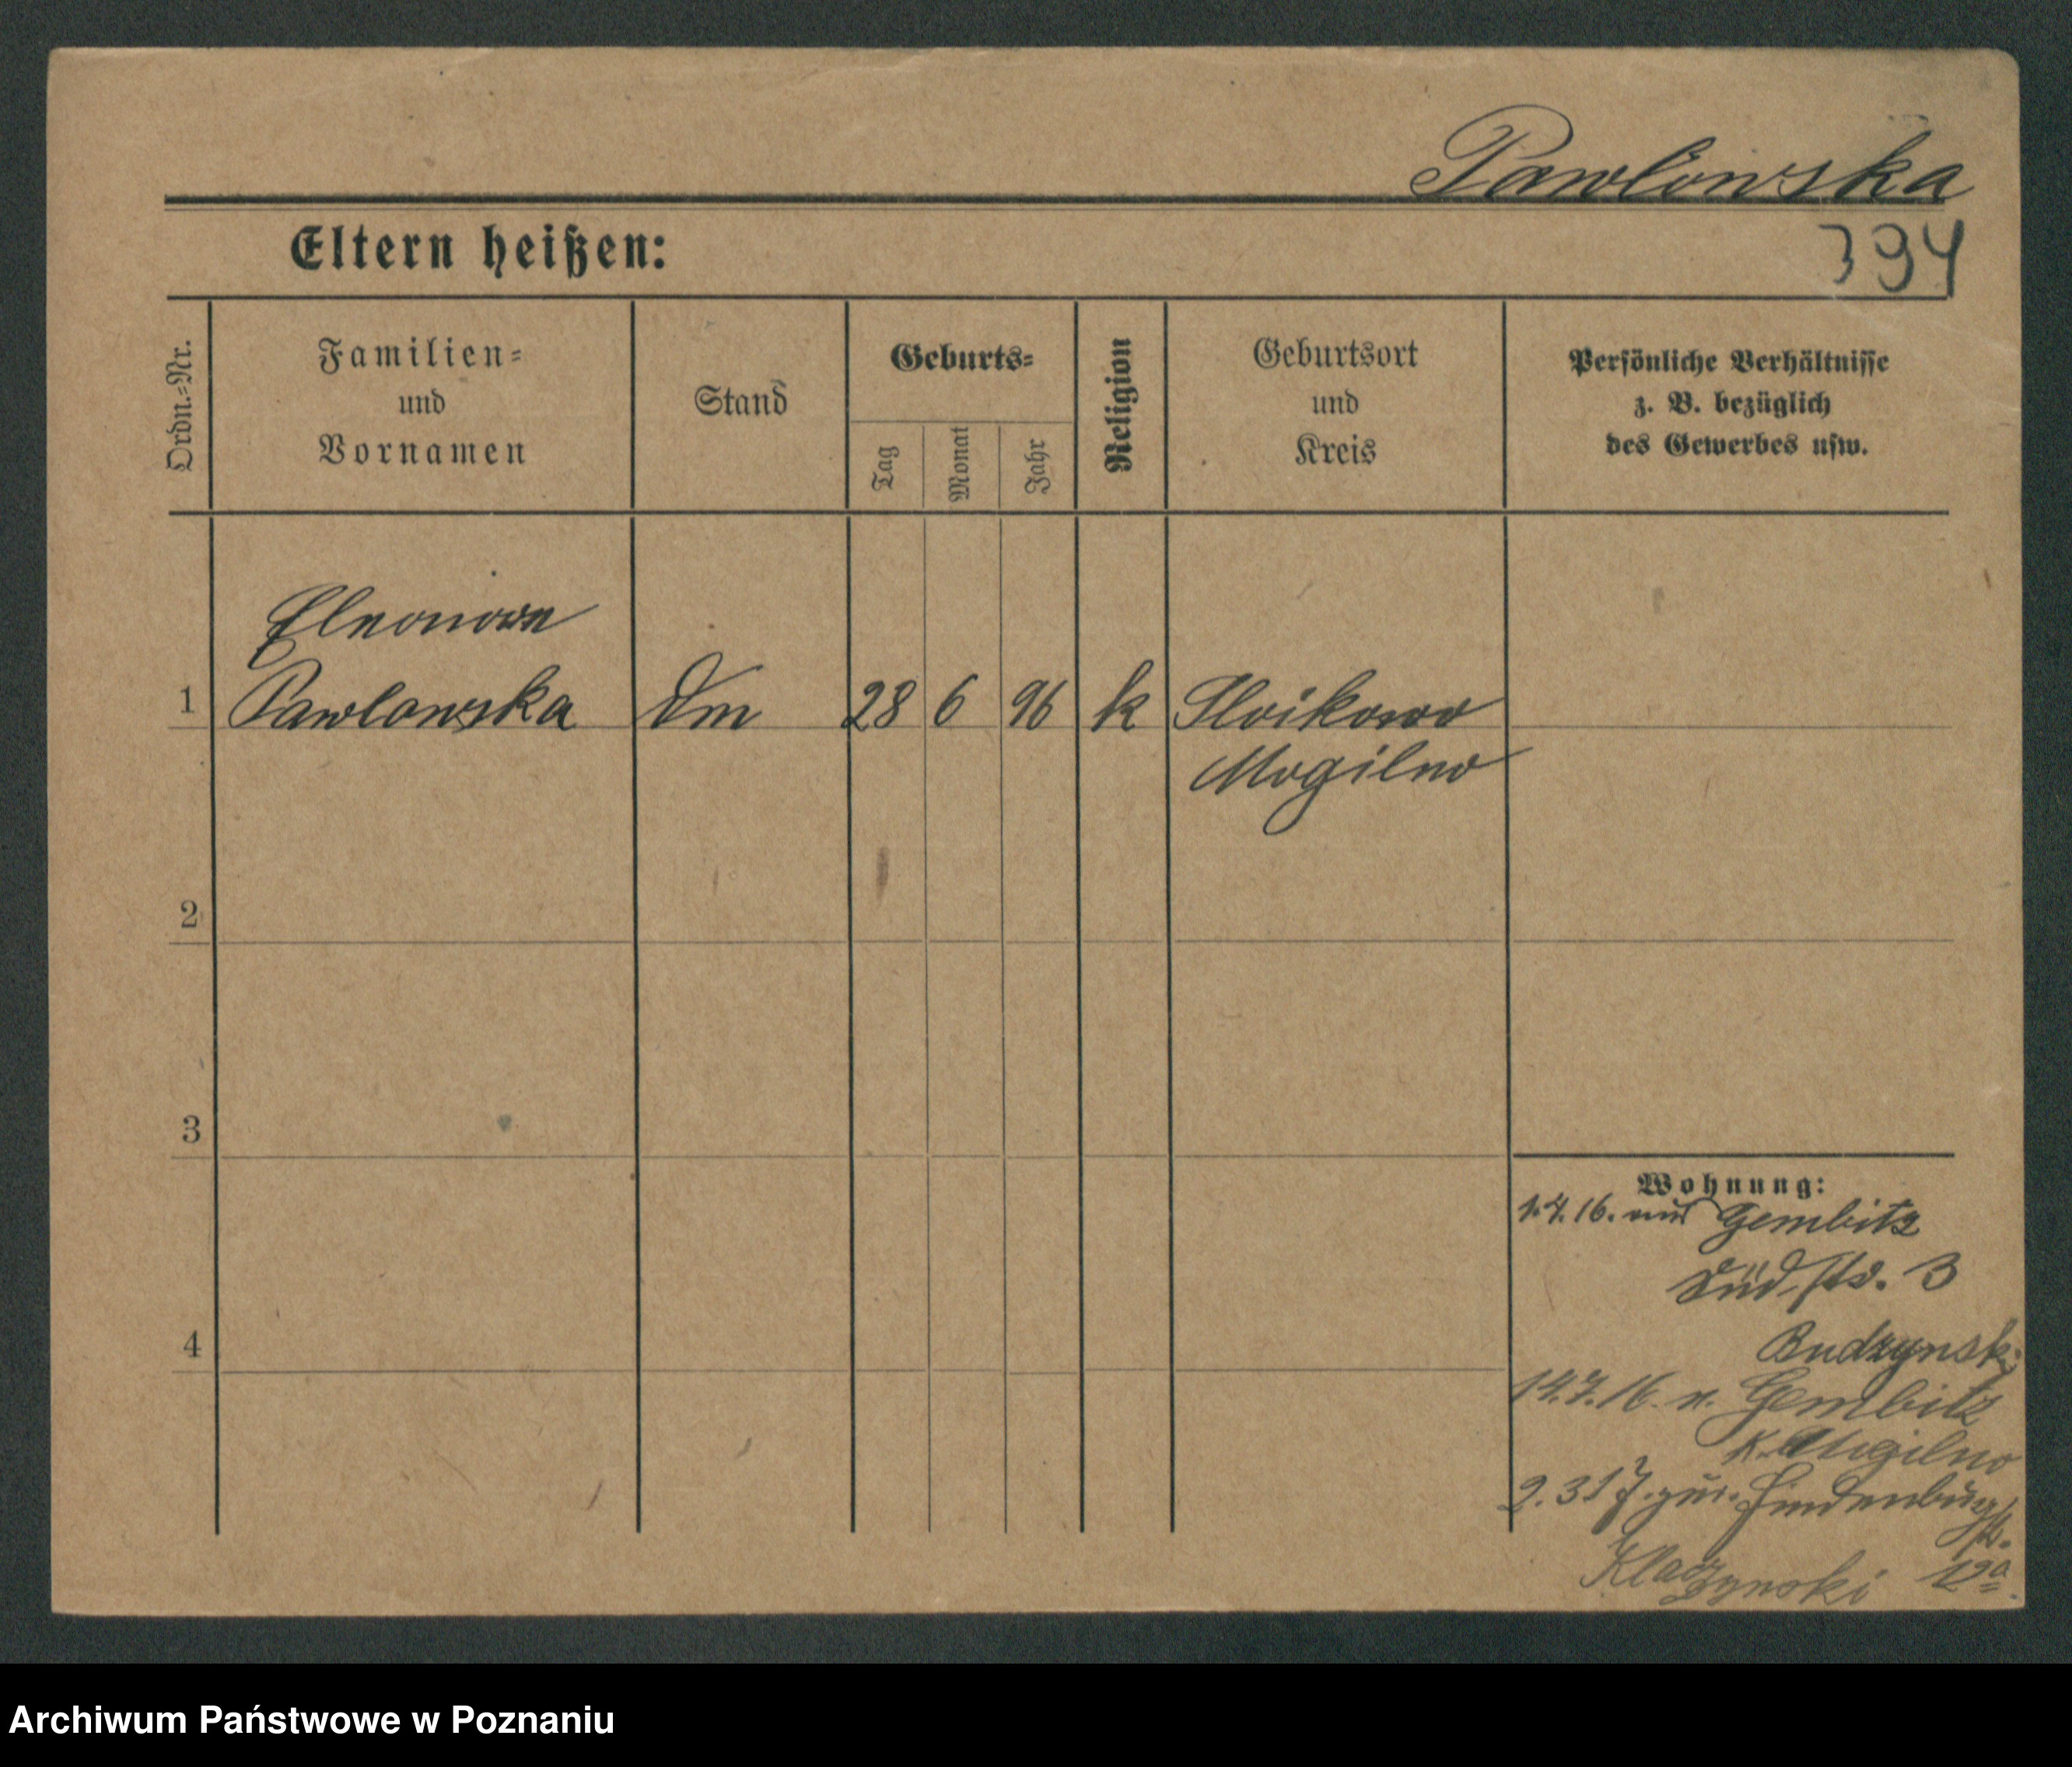 Pawlowska
Eltern heißen:
394
Ordn.=Nr.
Familien=
und
Vornamen
Stand
Geburts=
Tag
Monat
Jahr
Religion
Geburtsort
und
Kreis
Persönliche Verhältnisse
z. B. bezüglich
des Gewerbes usw.
Eleonore
1 Pawlowska 28 6 96 k
Mogilno
2
3
4
Wohnung:
16. aus Gembitz
Südstr. 3
Budzynski
16. n. Gembitz
K. Mogilno
zur. Hindenburgstr.
12a
Archiwum Państwowe w Poznaniu